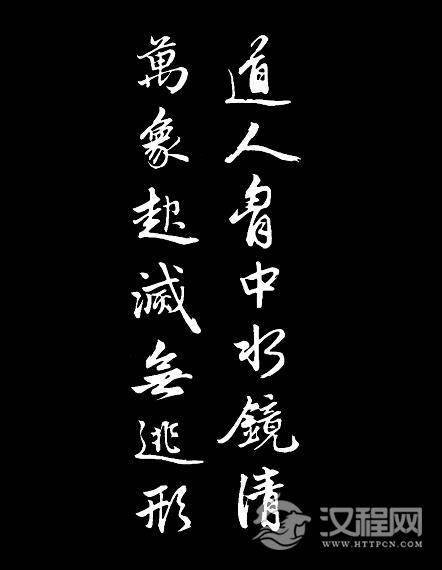 道人胷中水鏡清
萬象起滅無逃形
汉程网
WWW.HTTPCN.COM